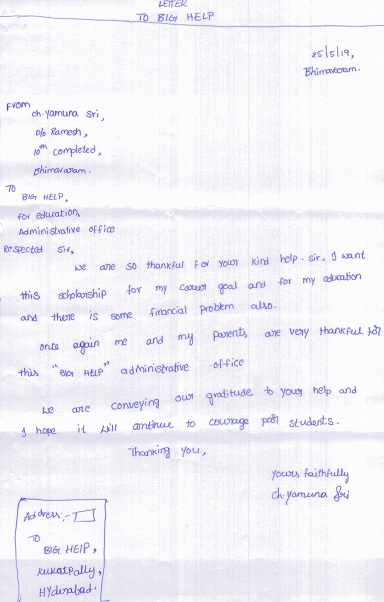 LETTER
TO BIG HELP
25/5/19,
Bhimavaram.
From
ch.yamuna sri,
D/o Ramesh,
10th completed,
Bhimavaram.
TO
BIG HELP,
for education,
Administrative office
Respected sir,
we are so thankful for your kind help. sir, I want
this scholarship for my career goal and for my education
and there is some financial problem also.
once again me and my parents are very thankful for
this "BIG HELP" administrative office
we are conveying our gratitude to your help and
I hope it will continue to courage students.
Thanking you,
yours faithfully
ch.yamuna Sri
Address:-
TO
BIG HElP,
kukatpally,
HYderabad.